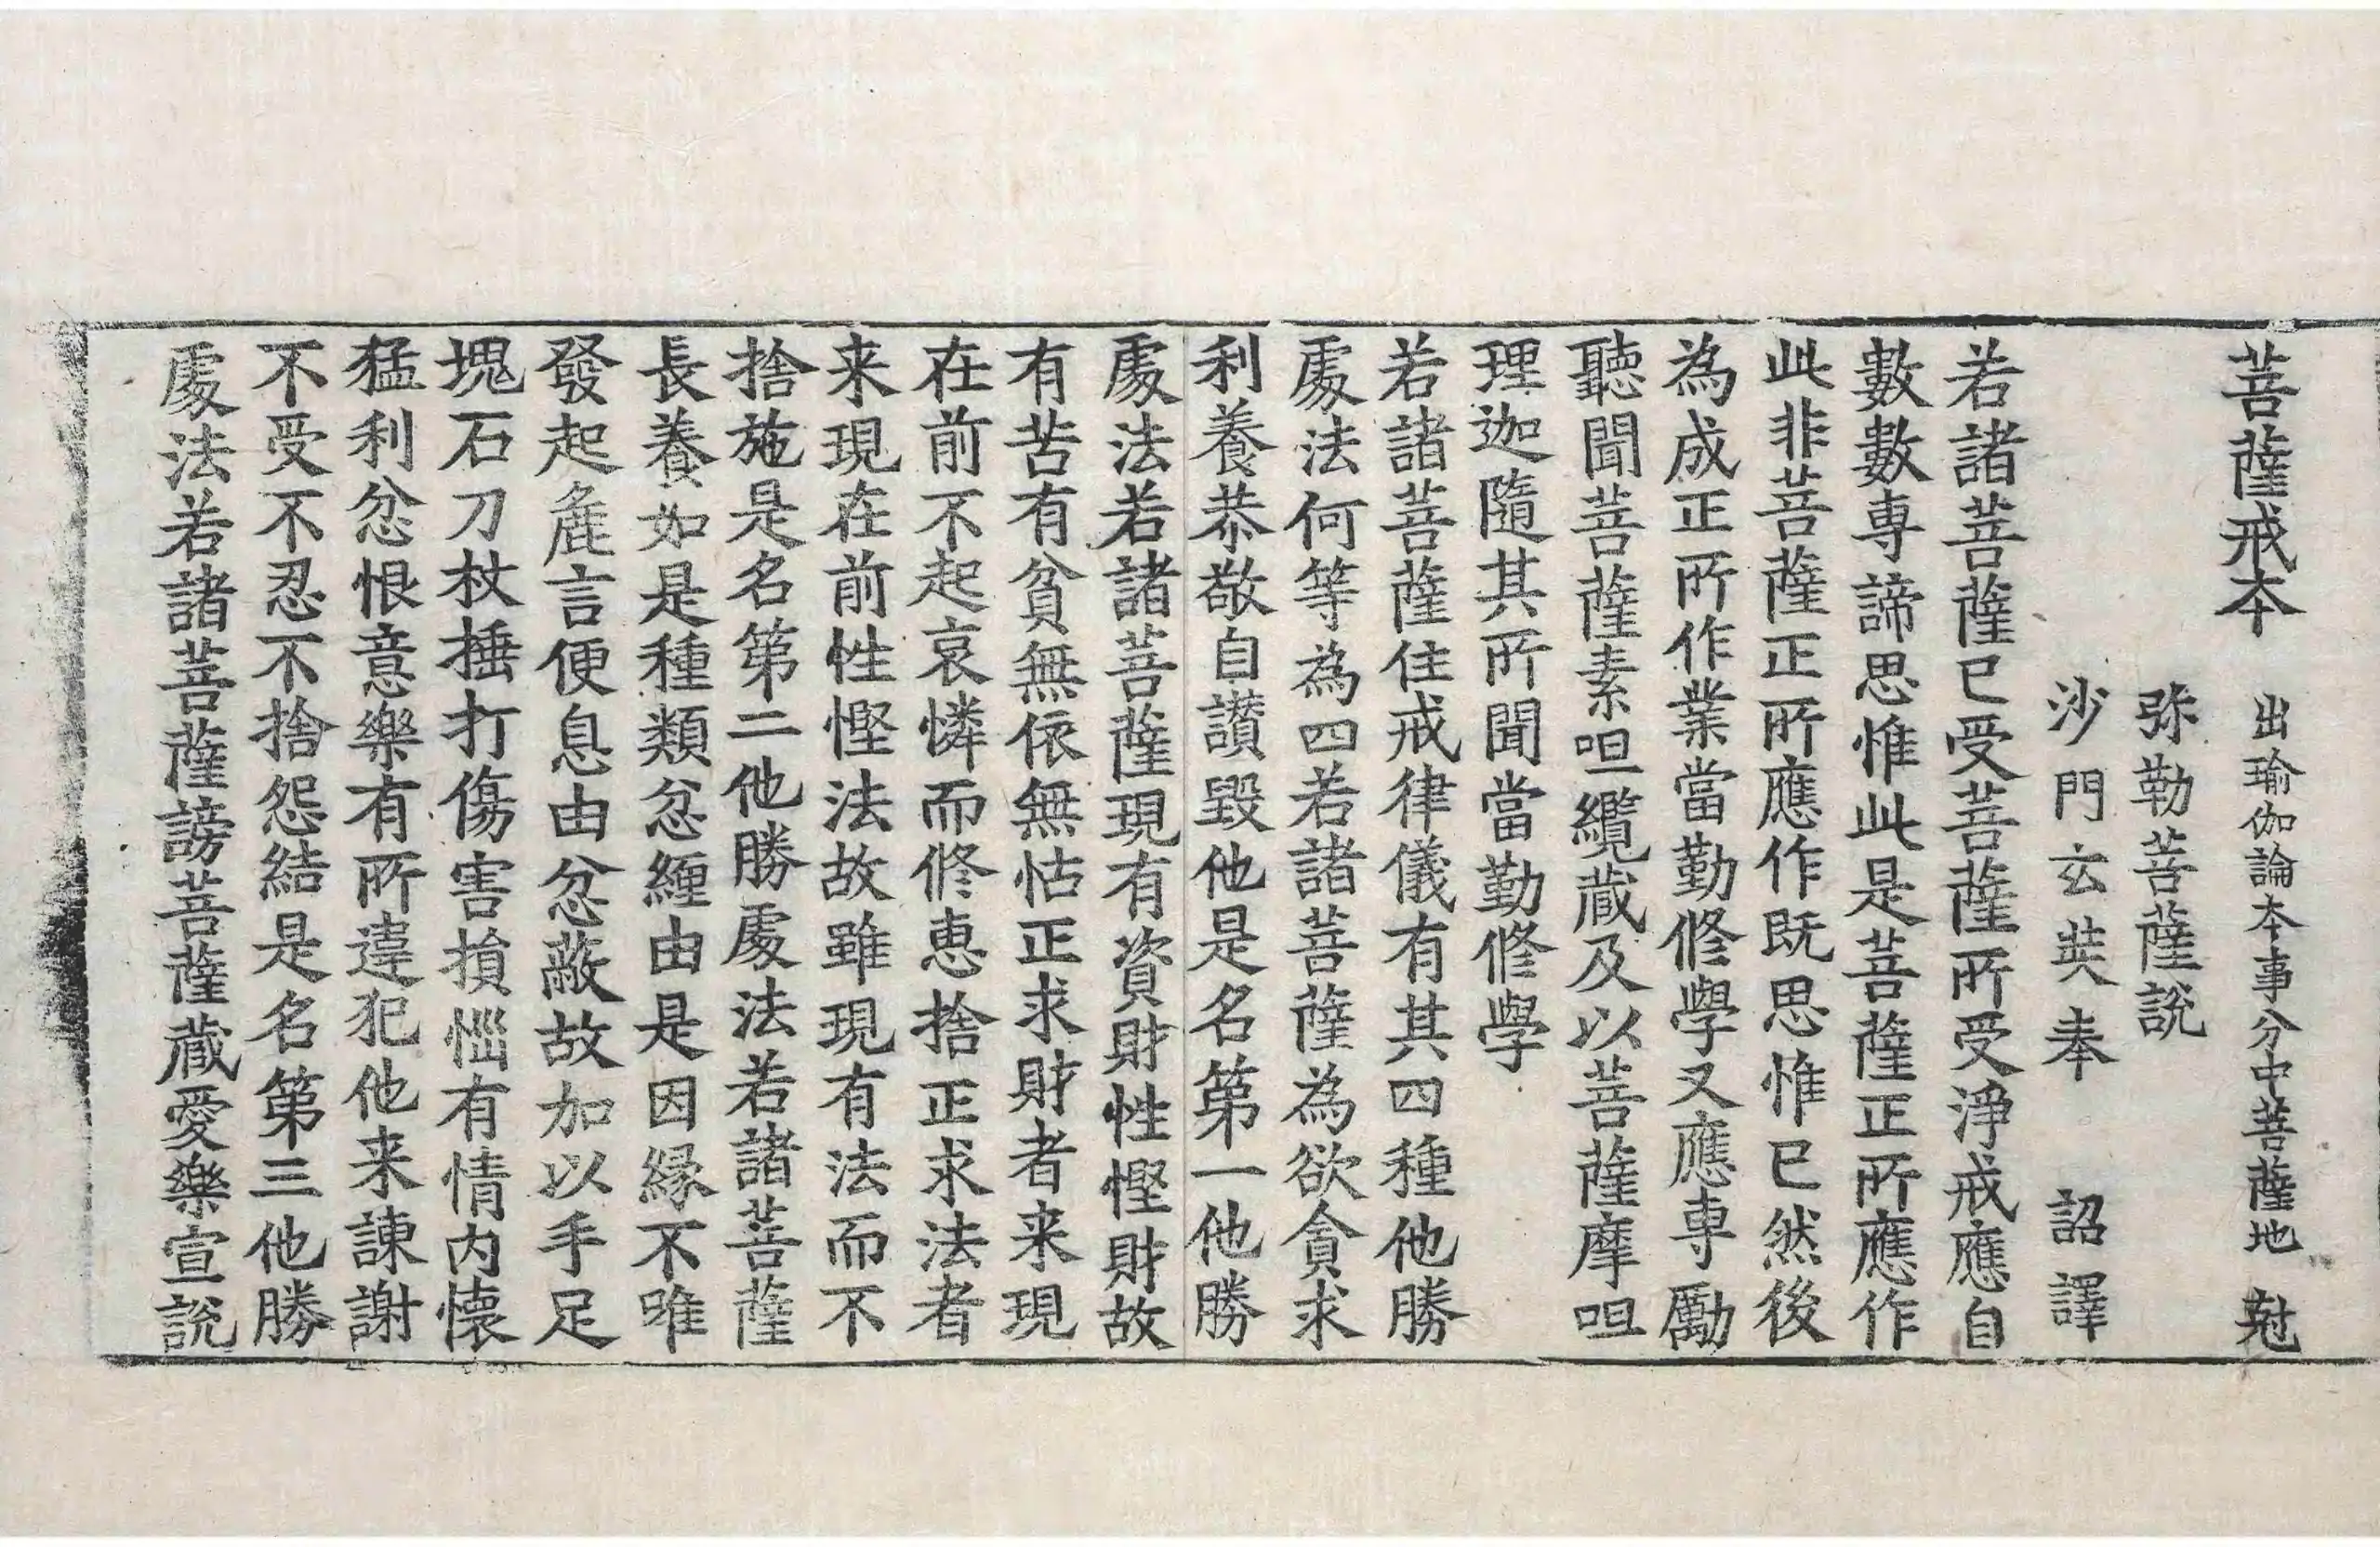 菩薩戒本 出瑜伽論本事分中菩薩地 尅
弥勒菩薩說
沙門玄奘奉 詔譯
若諸菩薩已受菩薩所受淨戒應自
數數專諦思惟此是菩薩正所應作
此非菩薩正所應作既思惟已然後
為成正所作業當勤修學又應專勵
聽聞菩薩素呾纜藏及以菩薩摩呾
理迦隨其所聞當勤修學
若諸菩薩住戒律儀有其四種他勝
處法何等為四若諸菩薩為欲貪求
利養恭敬自讚毀他是名第一他勝
處法若諸菩薩現有資財性慳財故
有苦有貧無依無怙正求財者来現
在前不起哀憐而修恵捨正求法者
来現在前性慳法故雖現有法而不
捨施是名第二他勝處法若諸菩薩
長養如是種類忿纏由是因緣不唯
發起麁言便息由忿蔽故加以手足
塊石刀杖捶打傷害損惱有情内懐
猛利忿恨意樂有所違犯他来諫謝
不受不忍不捨怨結是名第三他勝
處法若諸菩薩謗菩薩藏愛樂宣說